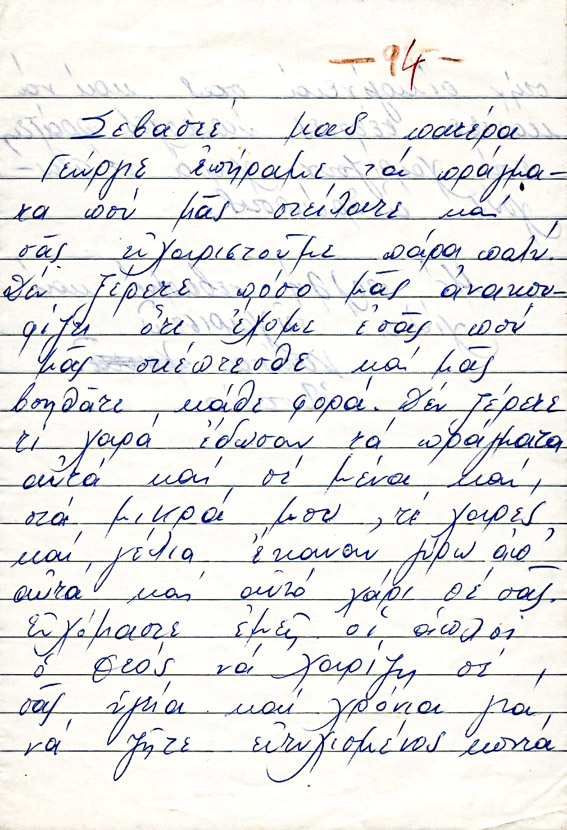 — 94 —
Σεβαστέ μας πατέρα
Γεώργιε ἐπήραμε τά πράγμα-
τα πού μᾶς στείλατε καί
σᾶς εὐχαριστοῦμε πάρα πολύ.
Δέν ξέρετε πόσο μᾶς ἀνακου-
φίζη ὅτι ἔχομε ἐσᾶς πού
μᾶς σκέπτεσθε καί μᾶς
βοηθᾶτε κάθε φορά. Δέν ξέρετε
τι χαρά ἔδωσαν τά πράγματα
αὐτά καί σέ μένα καί
στά μικρά μου, τί χαρές
καί γέλια ἔκαναν γύρω ἀπ'
αὐτα καί αὐτό χάρι σέ σᾶς.
Εὐχόμαστε ἐμεῖς οἱ ἁπλοί
ὁ Θεός νά χαρίζη σέ
σᾶς ὑγεία καί χρόνια γιά
νά ζῆτε εὐτυχισμένος κοντά